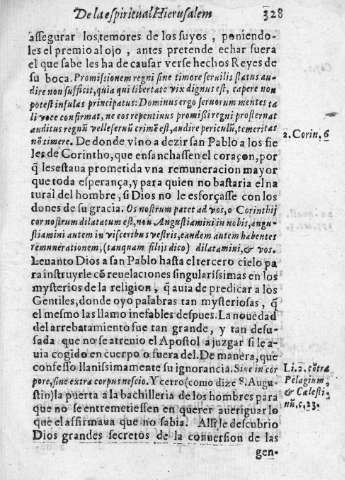 De la espiritual Hierusalem 328
assegurar los temores de los suyos, poniendo-
les el premio al ojo, antes pretende echar fuera
el que sabe les ha de causar verse hechos Reyes de
su boca. Promissionem regni sine timore seruilis status au-
dire non sufficit, quia qui libertate vix dignus est, capere non
potest insulas principatus: Dominus ergo seruorum mentes ta
li voce confirmat, ne eos repentinus promissi regni prosternat
auditus regnũ velle seruũ crimẽ est, audire periculũ, temeritat
nõ timere. De donde vino a dezir san Pablo a los fie
les de Corintho, que ensanchassen el coraçon, por
q̃ les estaua prometida vna remuneracion mayor
que toda esperança, y para quien no bastaria el na
tural del hombre, si Dios no le esforçasse con los
dones de su gracia. Os nostrum patet ad vos, o Corinthij
cor nostrum dilatatum est, non Angustiamini in nobis, angu-
stiamini autem in visceribus vestris, eandem autem habentes
remunerationem, (tanquam filijs dico) dilatamini, & vos.
Leuanto Dios a san Pablo hasta el tercero cielo pa
ra instruyrle cõ reuelaciones singularissimas en los
mysterios de la religion, q̃ auia de predicar a los
Gentiles, donde oyo palabras tan mysteriosas, q̃
el mesmo las llamo inefables despues. La nouedad
del arrebatamiento fue tan grande, y tan desu-
sada que no se atreuio el Apostol a juzgar si le a-
uia cogido en cuerpo o fuera del. De manera, que
confesso llanissimamente su ignorancia. Siue in cor
pore, siue extra corpus nescio. Y cerro (como dize S. Augu-
stin) la puerta a la bachilleria de los hombres para
que no se entremetiessen en querer aueriguar lo
que el affirmaua que no sabia. Alli le descubrio
Dios grandes secretos de la conuersion de las
gen-
2. Corin. 6
Li. 2. cõtra
Pelagium,
& Cælesti-
nũ, c. 23.